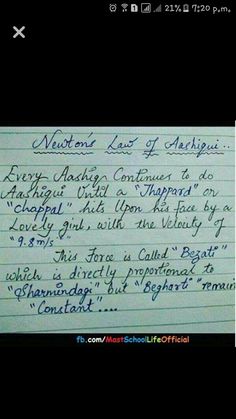 21% 7:20 p.m.
Newton's Law of Aashiqui..
Every Aashiq Continues to do
Aashiqui Until a "Thappard" or
"Chappal" hits Upon his face by a
Lovely girl, with the Velocity of
"9.8m/s
This Force is Called "Bezati"
which is directly proportional to
"Sharmindagi" but "Begharti" remain
"Constant"....
fb.com/MastSchoolLifeOfficial